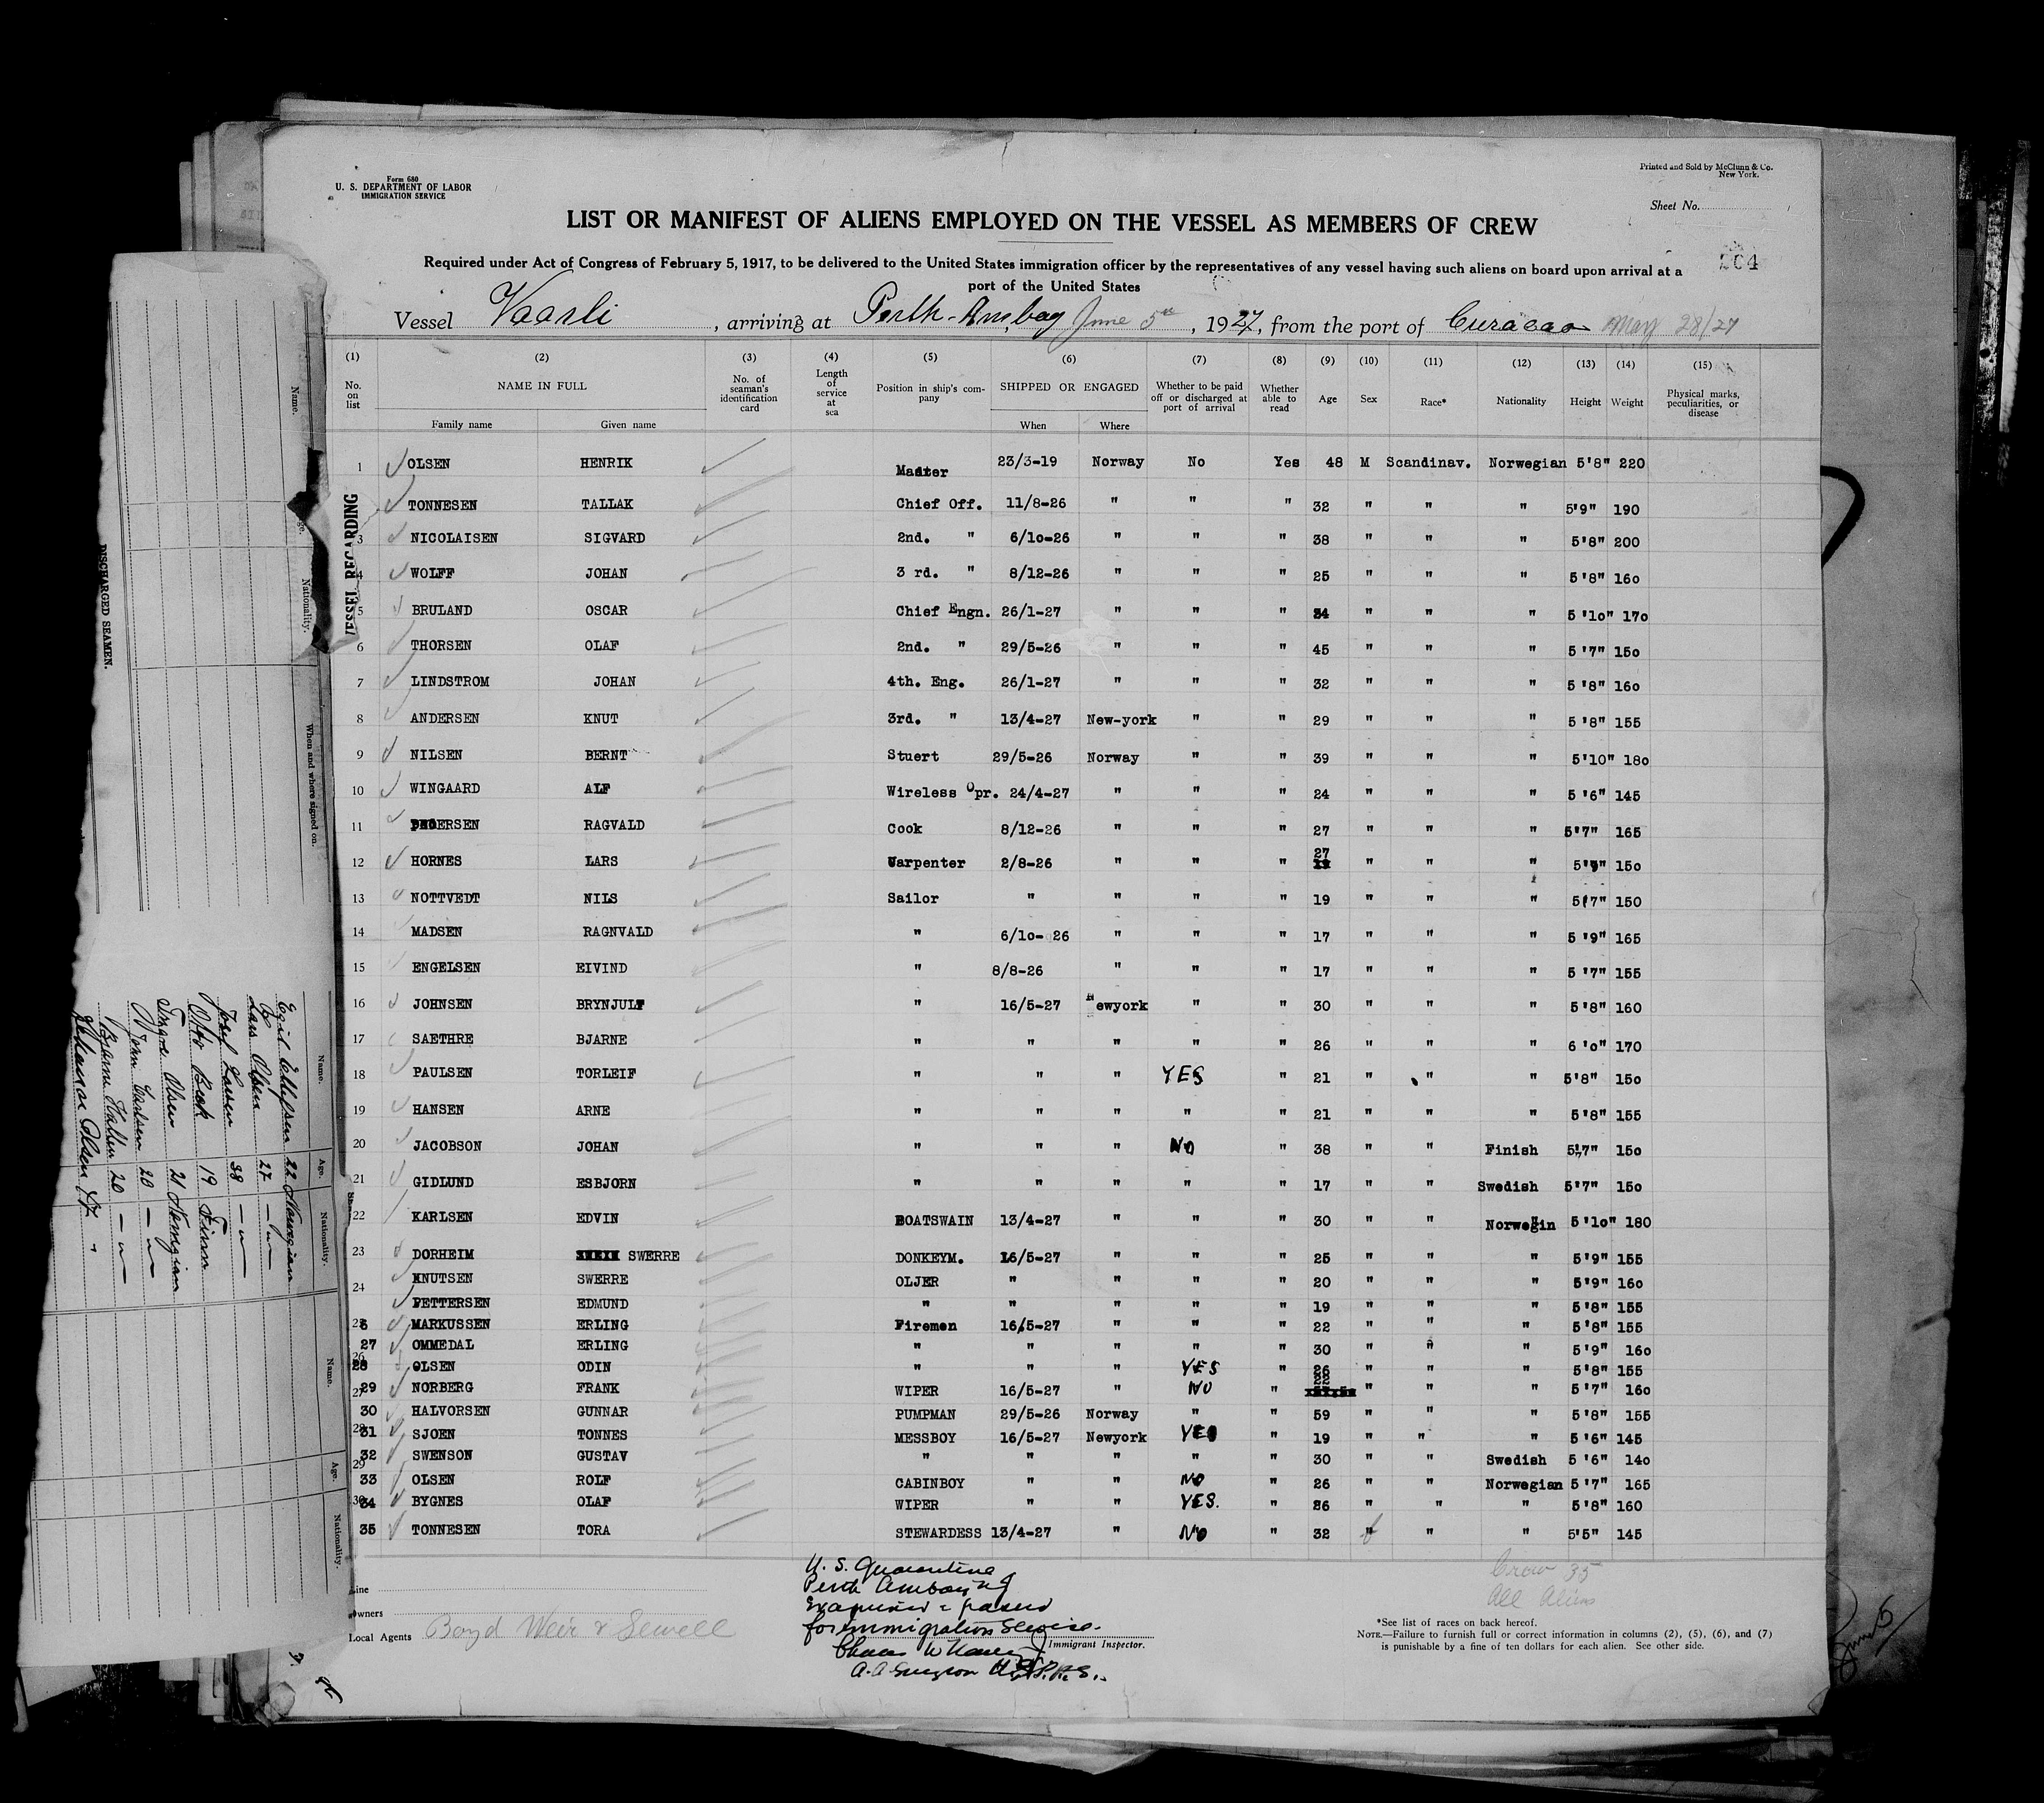 Form 680
U. S. DEPARTMENT OF LABOR
IMMIGRATION SERVICE
Printed and Sold by McClunn & Co.
New York.
Sheet No.
LIST OR MANIFEST OF ALIENS EMPLOYED ON THE VESSEL AS MEMBERS OF CREW
Required under Act of Congress of February 5, 1917, to be delivered to the United States immigration officer by the representatives of any vessel having such aliens on board upon arrival at a
port of the United States
204
Vessel Vaarli, arriving at Perth-Amboy June 5th, 1927, from the port of Curacao May 28/27
(1) (2) (3) (4) (5) (6) (7) (8) (9) (10) (11) (12) (13) (14) (15)
No. on list NAME IN FULL No. of seaman's identification card Length of service at sea Position in ship's company SHIPPED OR ENGAGED Whether to be paid off or discharged at port of arrival Whether able to read Age Sex Race* Nationality Height Weight Physical marks, peculiarities, or disease
Family name Given name When Where
1 OLSEN HENRIK Master 23/3-19 Norway No Yes 48 M Scandinav. Norwegian 5'8" 220
TONNESEN TALLAK Chief Off. 11/8-26 " " " 32 " " " 5'9" 190
3 NICOLAISEN SIGVARD 2nd. " 6/10-26 " " " 38 " " " 5'8" 200
4 WOLFF JOHAN 3 rd. " 8/12-26 " " " 25 " " " 5'8" 160
5 BRULAND OSCAR Chief Engn. 26/1-27 " " " 34 " " " 5'10" 170
6 THORSEN OLAF 2nd. " 29/5-26 " " " 45 " " " 5'7" 150
7 LINDSTROM JOHAN 4th. Eng. 26/1-27 " " " 32 " " " 5'8" 160
8 ANDERSEN KNUT 3rd. " 13/4-27 New-york " " 29 " " " 5'8" 155
9 NILSEN BERNT Stuert 29/5-26 Norway " " 39 " " " 5'10" 180
10 WINGAARD ALF Wireless Opr. 24/4-27 " " " 24 " " " 5'6" 145
11 PEDERSEN RAGVALD Cook 8/12-26 " " " 27 " " " 5'7" 165
12 HORNES LARS Carpenter 2/8-26 " " " 27 " " " 5'7" 150
13 NOTTVEDT NILS Sailor " " " " 19 " " " 5'7" 150
14 MADSEN RAGNVALD " 6/10-26 " " " 17 " " " 5'9" 165
15 ENGELSEN EIVIND " 8/8-26 " " " 17 " " " 5'7" 155
16 JOHNSEN BRYNJULF " 16/5-27 Newyork " " 30 " " " 5'8" 160
17 SAETHRE BJARNE " " " " " 26 " " " 6'0" 170
18 PAULSEN TORLEIF " " " YES " 21 " " " 5'8" 150
19 HANSEN ARNE " " " " " 21 " " " 5'8" 155
20 JACOBSON JOHAN " " " NO " 38 " " Finish 5'7" 150
21 GIDLUND ESBJORN " " " " " 17 " " Swedish 5'7" 150
22 KARLSEN EDVIN BOATSWAIN 13/4-27 " " " 30 " " Norwegin 5'10" 180
23 DORHEIM SWERRE DONKEYM. 16/5-27 " " " 25 " " " 5'9" 155
24 KNUTSEN SWERRE OLJER " " " " 20 " " " 5'9" 160
PETTERSEN EDMUND " " " " " 19 " " " 5'8" 155
6 MARKUSSEN ERLING Firemen 16/5-27 " " " 22 " " " 5'8" 155
27 OMMEDAL ERLING " " " " " 30 " " " 5'9" 160
28 OLSEN ODIN " " " YES " 26 " " " 5'8" 155
29 NORBERG FRANK WIPER 16/5-27 " NO " 22 " " " 5'7" 160
30 HALVORSEN GUNNAR PUMPMAN 29/5-26 Norway " " 59 " " " 5'8" 155
31 SJOEN TONNES MESSBOY 16/5-27 Newyork YES " 19 " " " 5'6" 145
32 SWENSON GUSTAV " " " " " 30 " " Swedish 5'6" 140
33 OLSEN ROLF CABINBOY " " NO " 26 " " Norwegian 5'7" 165
34 BYGNES OLAF WIPER " " YES. " 26 " " " 5'8" 160
35 TONNESEN TORA STEWARDESS 13/4-27 " NO " 32 f " " 5'5" 145
Line
Owners
Local Agents Boyd Weir & Sewell
U. S. Quarantine
Perth Amboy NJ
Examined & passed
for immigration service.
Immigrant Inspector.
A. A. Surgeon U.S.P.H.S.
Crew 35
All Aliens
*See list of races on back hereof.
NOTE.—Failure to furnish full or correct information in columns (2), (5), (6), and (7)
is punishable by a fine of ten dollars for each alien. See other side.
VESSEL REGARDING
DISCHARGED SEAMEN.
Name. Age. Nationality. When and where signed on.
Name. Age. Nationality.
Egil Ellefsen 22 Norwegian
Lars Olsen 27
Josef Larsen 38
Otto Book 19 Finn
Ingvar Olsen 21 Norwegian
John Carlsen 20
Bjarne Hatlem 20
Olsen 17
Name. Age. Nationality.
June 5